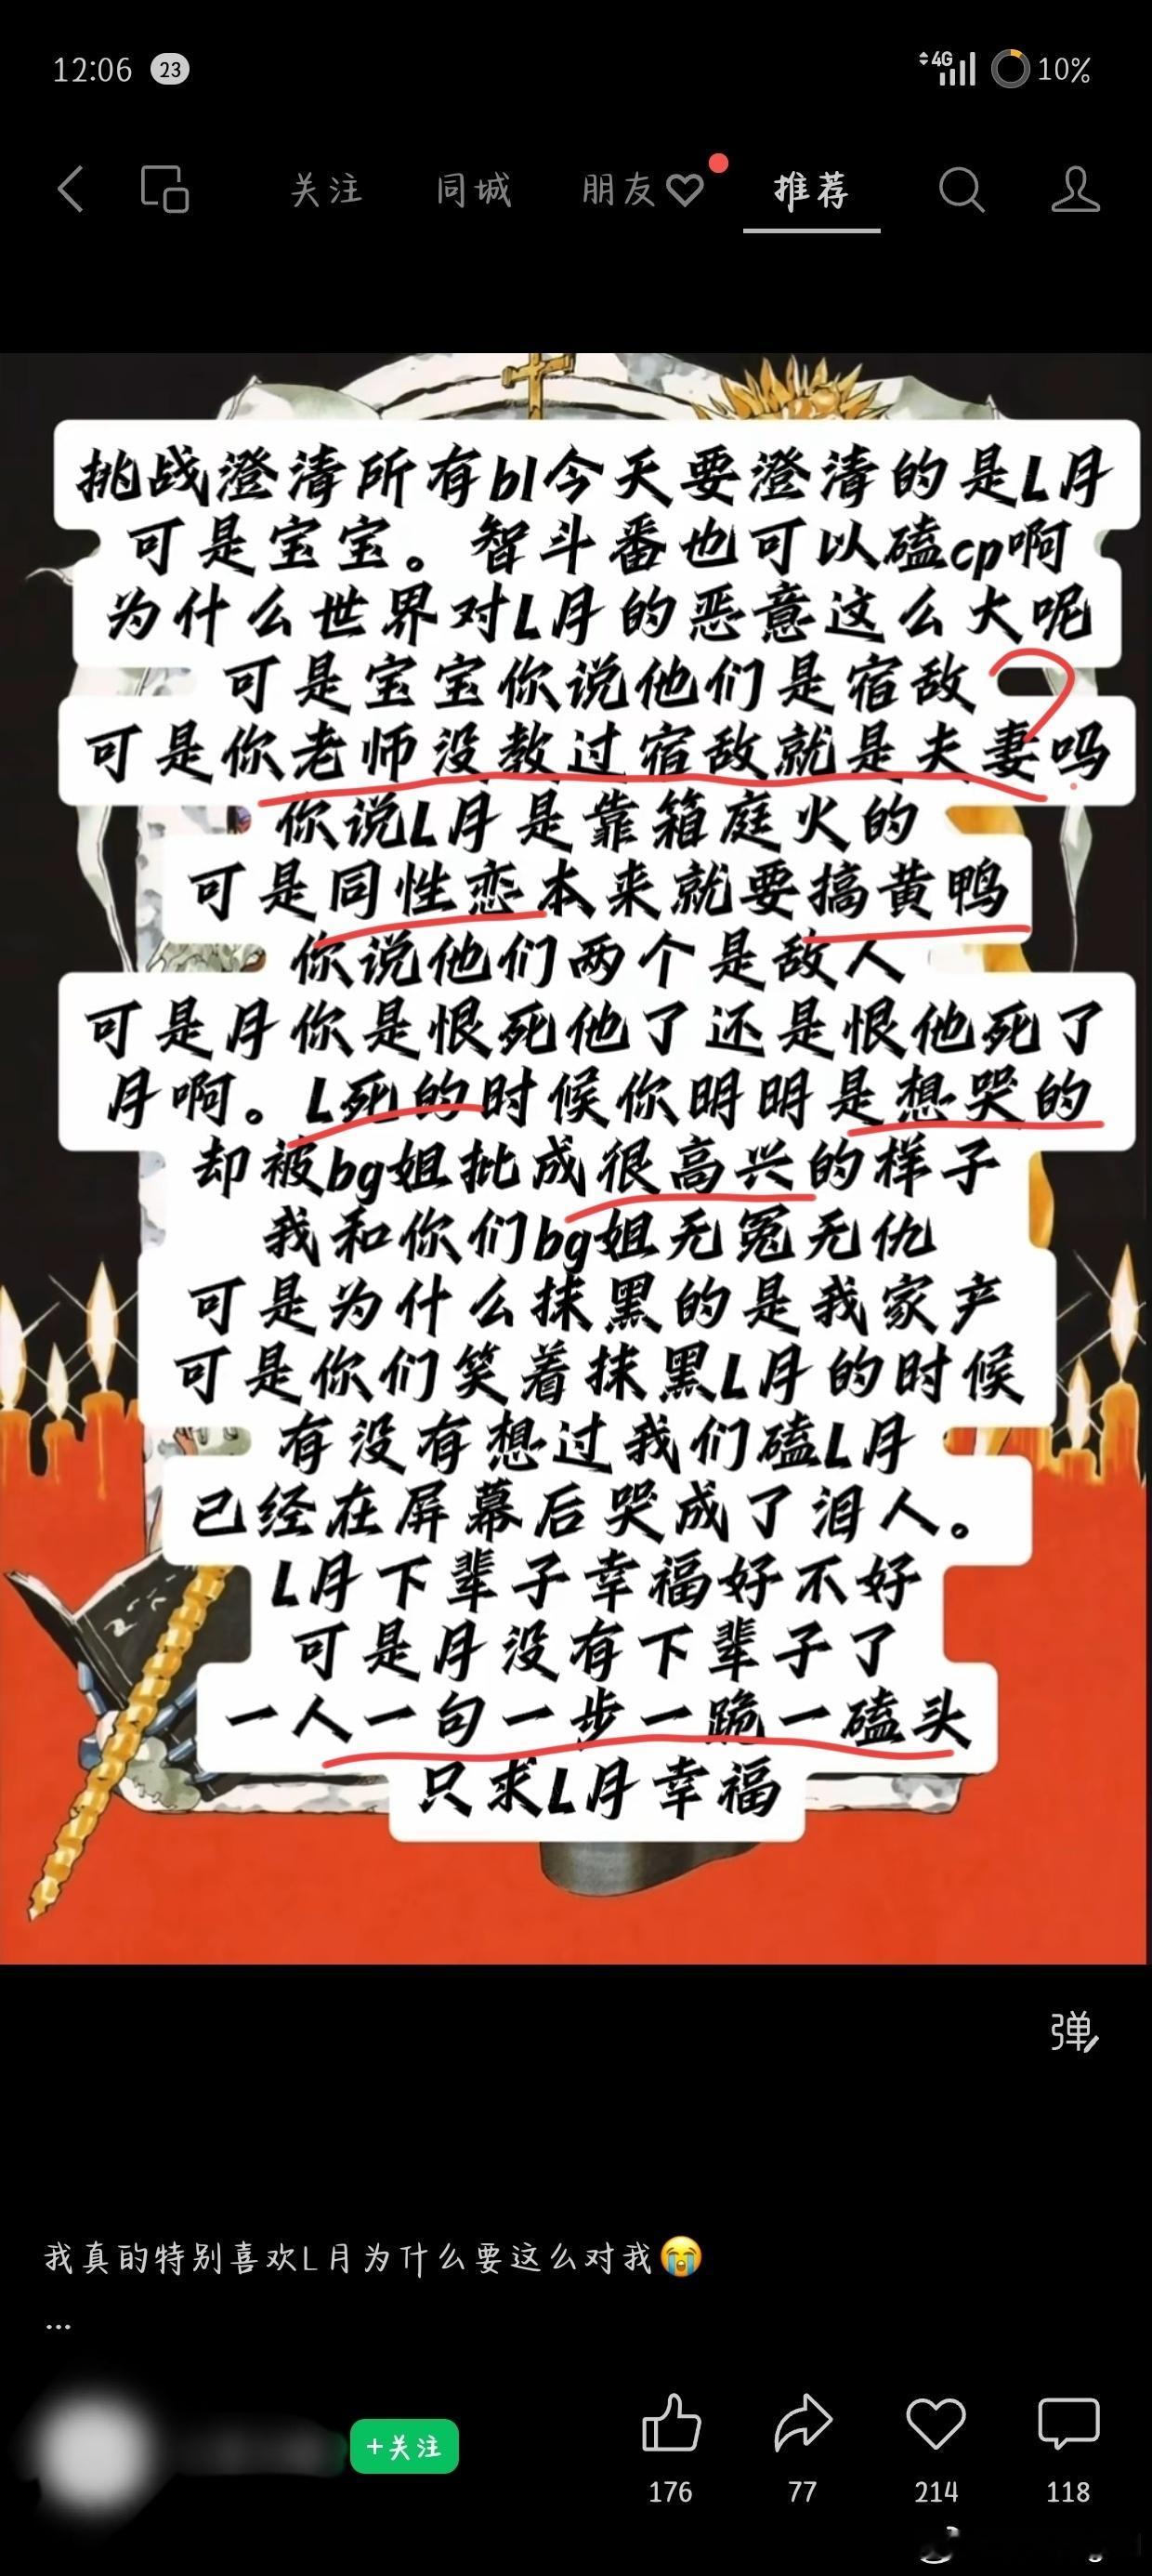 12:06 23 4G 10%
关注 同城 朋友 推荐
挑战澄清所有bl今天要澄清的是L月
可是宝宝。智斗番也可以磕cp啊
为什么世界对L月的恶意这么大呢
可是宝宝你说他们是宿敌
可是你老师没教过宿敌就是夫妻吗
你说L月是靠箱庭火的
可是同性恋本来就要搞黄鸭
你说他们两个是敌人
可是月你是恨死他了还是恨他死了
月啊。L死的时候你明明是想哭的
却被bg姐批成很高兴的样子
我和你们bg姐无冤无仇
可是为什么抹黑的是我家产
可是你们笑着抹黑L月的时候
有没有想过我们磕L月
已经在屏幕后哭成了泪人。
L月下辈子幸福好不好
可是月没有下辈子了
一人一句一步一跪一磕头
只求L月幸福
弹
我真的特别喜欢L月为什么要这么对我😭
...
+关注
176 77 214 118